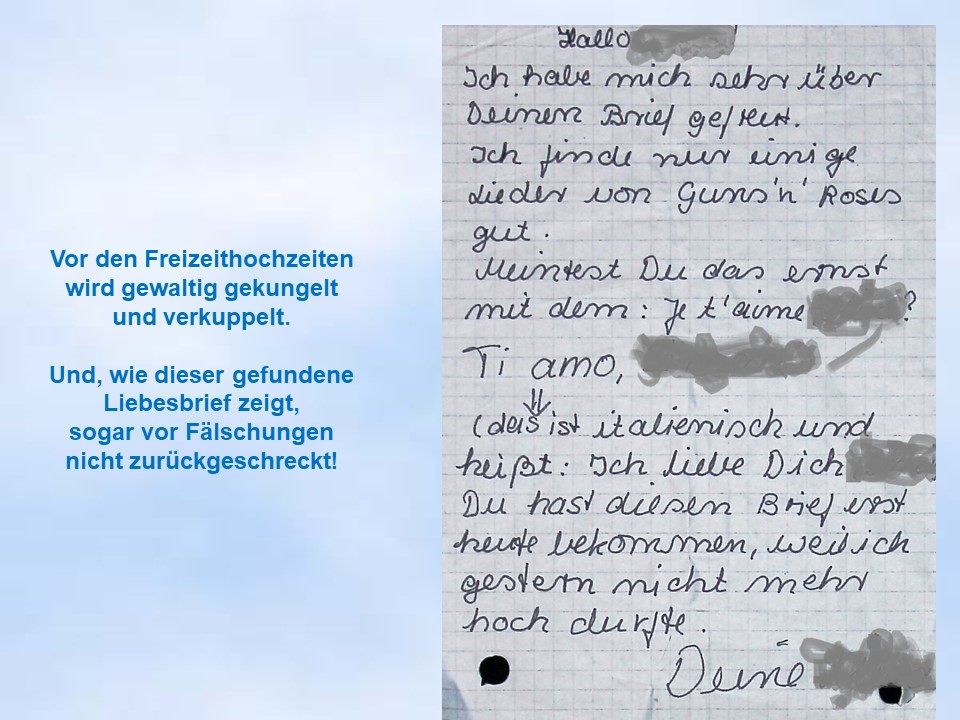 Vor den Freizeithochzeiten
wird gewaltig gekungelt
und verkuppelt.
Und, wie dieser gefundene
Liebesbrief zeigt,
sogar vor Fälschungen
nicht zurückgeschreckt!
Hallo
Ich habe mich sehr über
Deinen Brief gefreut.
Ich finde nur einige
Lieder von Guns'n' Roses
gut.
Meintest Du das ernst
mit dem: Je t'aime ?
Ti amo,
(das ist italienisch und
heißt: Ich liebe Dich
Du hast diesen Brief erst
heute bekommen, weil ich
gestern nicht mehr
hoch durfte.
Deine